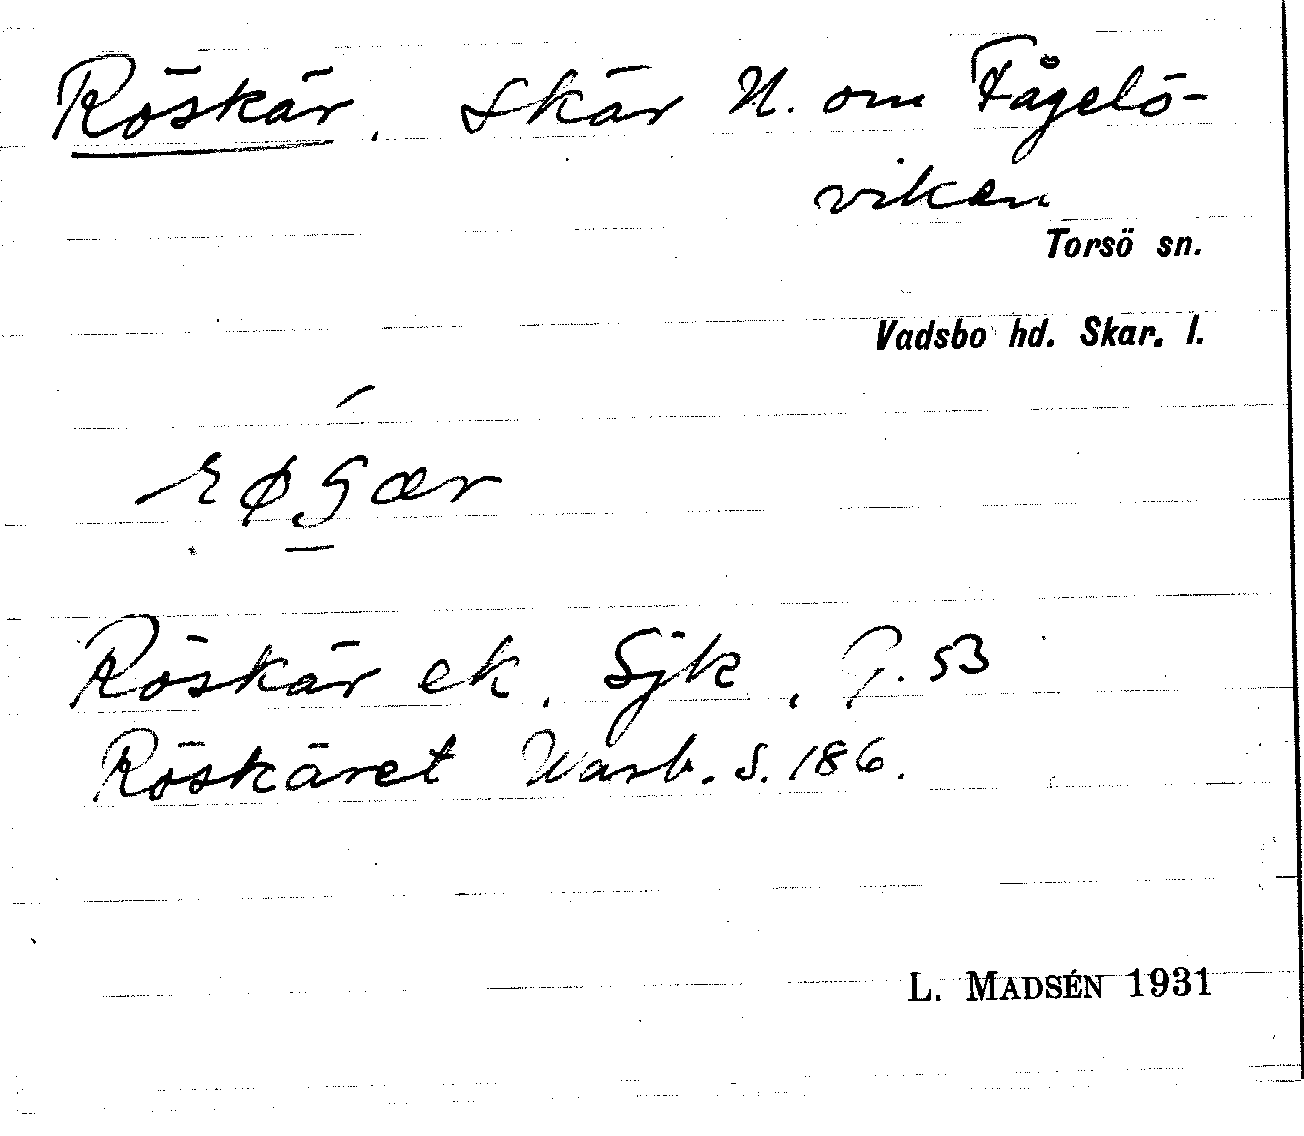 Röskär. Skär N. om Fågelö-
viken
Torsö sn.
Vadsbo hd. Skar. l.
Röskär ek. Sjk, G. 53
Röskäret Warb. S. 186.
L. MADSÉN 1931